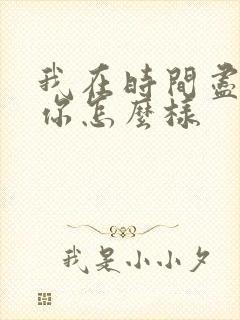 我在時間盡
你怎麼樣
我是小小夕